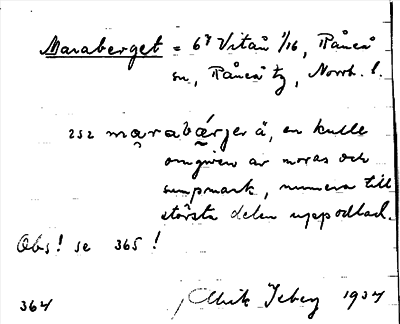 Maraberget = 6⁸ Vitån 1/16, Råneå
sn, Råneå tg, Norrb. l.
252 marabärjerå, en kulle
omgiven av moras och
sumpmark, numera till
största delen uppodlad.
Obs! se 365!
364 1937